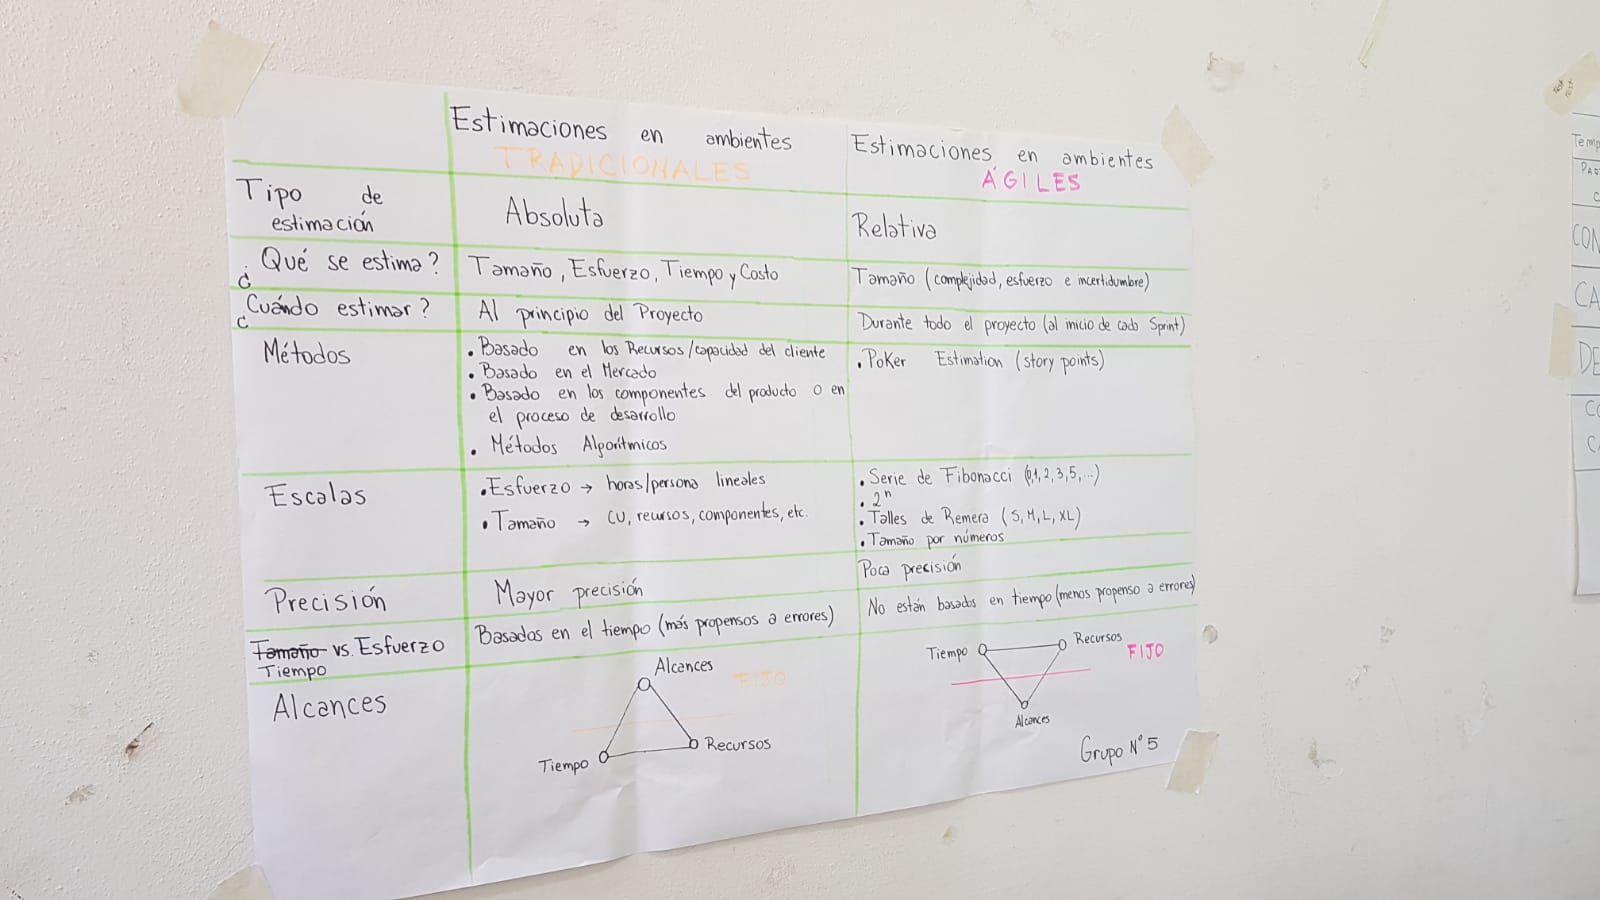 Estimaciones en ambientes
TRADICIONALES
Estimaciones en ambientes
ÁGILES
Tipo de
estimación
Absoluta
Relativa
¿Qué se estima?
Tamaño, Esfuerzo, Tiempo y Costo
Tamaño (complejidad, esfuerzo e incertidumbre)
¿Cuándo estimar?
Al principio del Proyecto
Durante todo el proyecto (al inicio de cada Sprint)
Métodos
• Basado en los Recursos/capacidad del cliente
• Basado en el Mercado
• Basado en los componentes del producto o en
el proceso de desarrollo
• Métodos Algorítmicos
• Poker Estimation (story points)
Escalas
• Esfuerzo → horas/persona lineales
• Tamaño → CU, recursos, componentes, etc.
• Serie de Fibonacci (0,1,2,3,5,...)
• 2ⁿ
• Talles de Remera (S, M, L, XL)
• Tamaño por números
Precisión
Mayor precisión
Poca precisión
Tamaño vs. Esfuerzo
Tiempo
Basados en el tiempo (más propensos a errores)
No están basados en tiempo (menos propenso a errores)
Alcances
Alcances
FIJO
Tiempo
Recursos
Tiempo
Recursos
FIJO
Alcances
Grupo N° 5